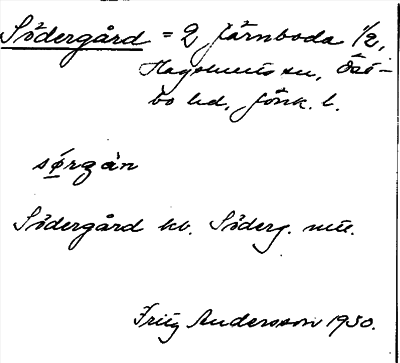 Södergård = 2 Järnboda 1/2,
Hagshults sn, Öst-
bo hd, Jönk. l.
sørgån
Södergård kv. Söderg. mtl.
Friig Andersson 1930.